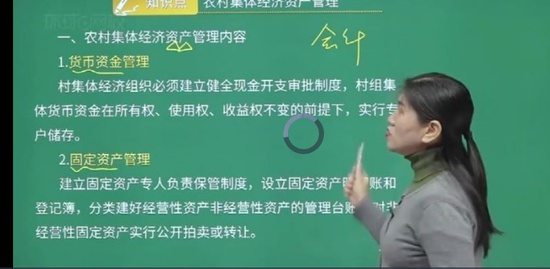 知识点 农村集体经济资产管理
一、农村集体经济资产管理内容
会计
1.货币资金管理
村集体经济组织必须建立健全现金开支审批制度，村组集
体货币资金在所有权、使用权、收益权不变的前提下，实行专
户储存。
2.固定资产管理
建立固定资产专人负责保管制度，设立固定资产 账和
登记簿，分类建好经营性资产非经营性资产的管理台账 对非
经营性固定资产实行公开拍卖或转让。